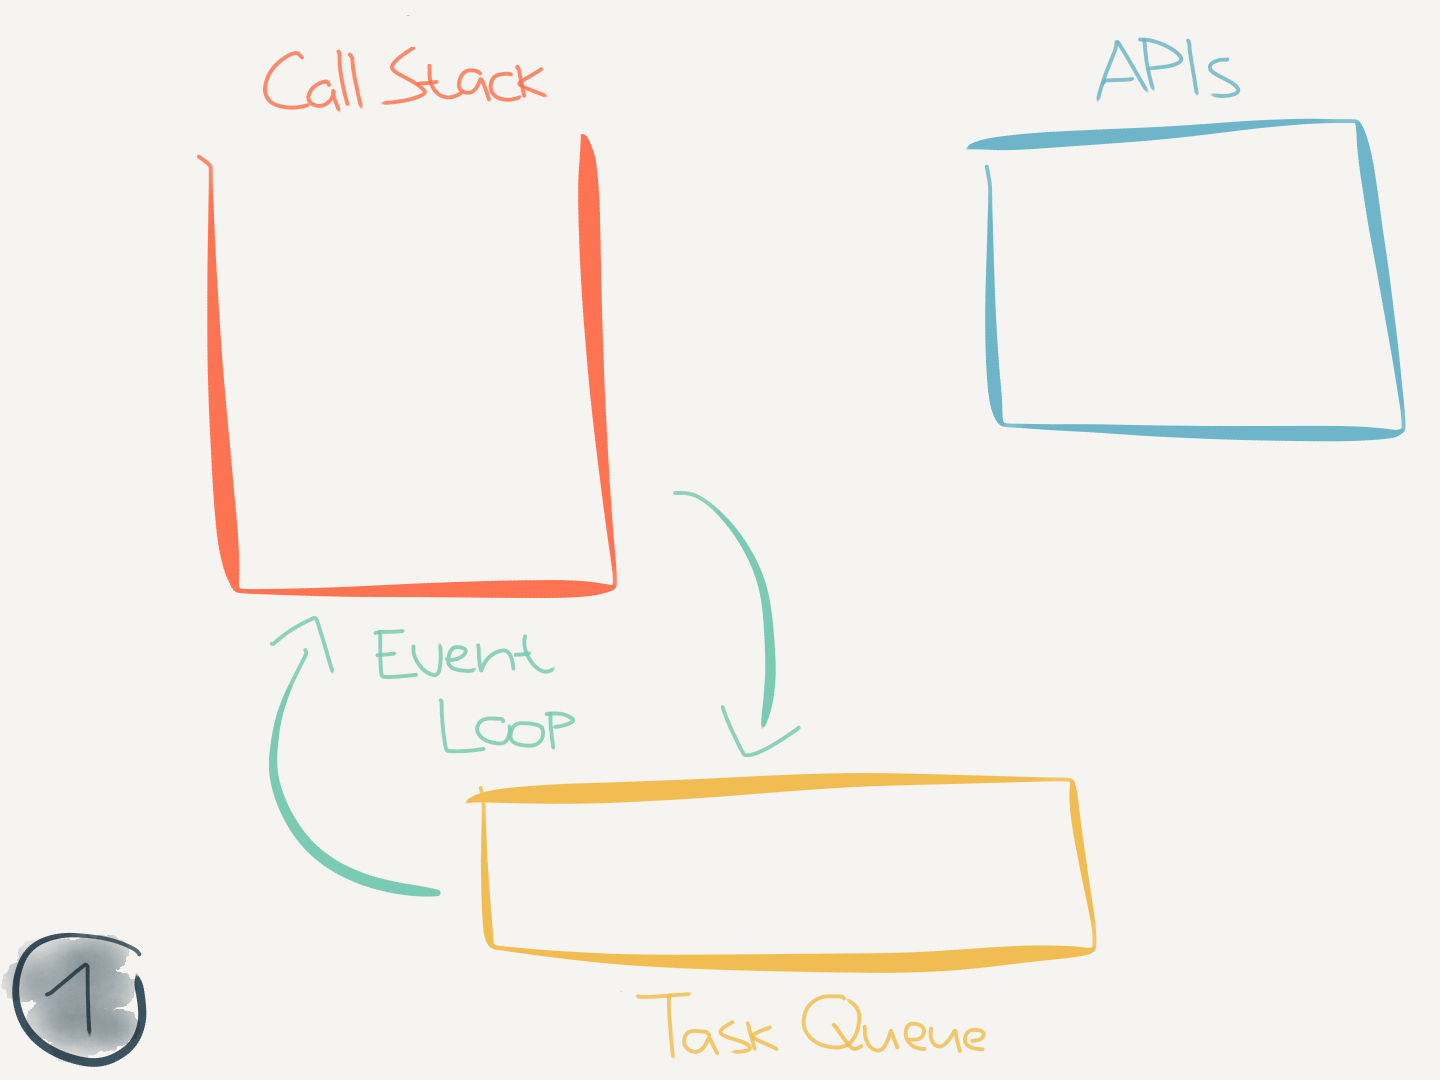 Call Stack
APIs
Event
Loop
Task Queue
1